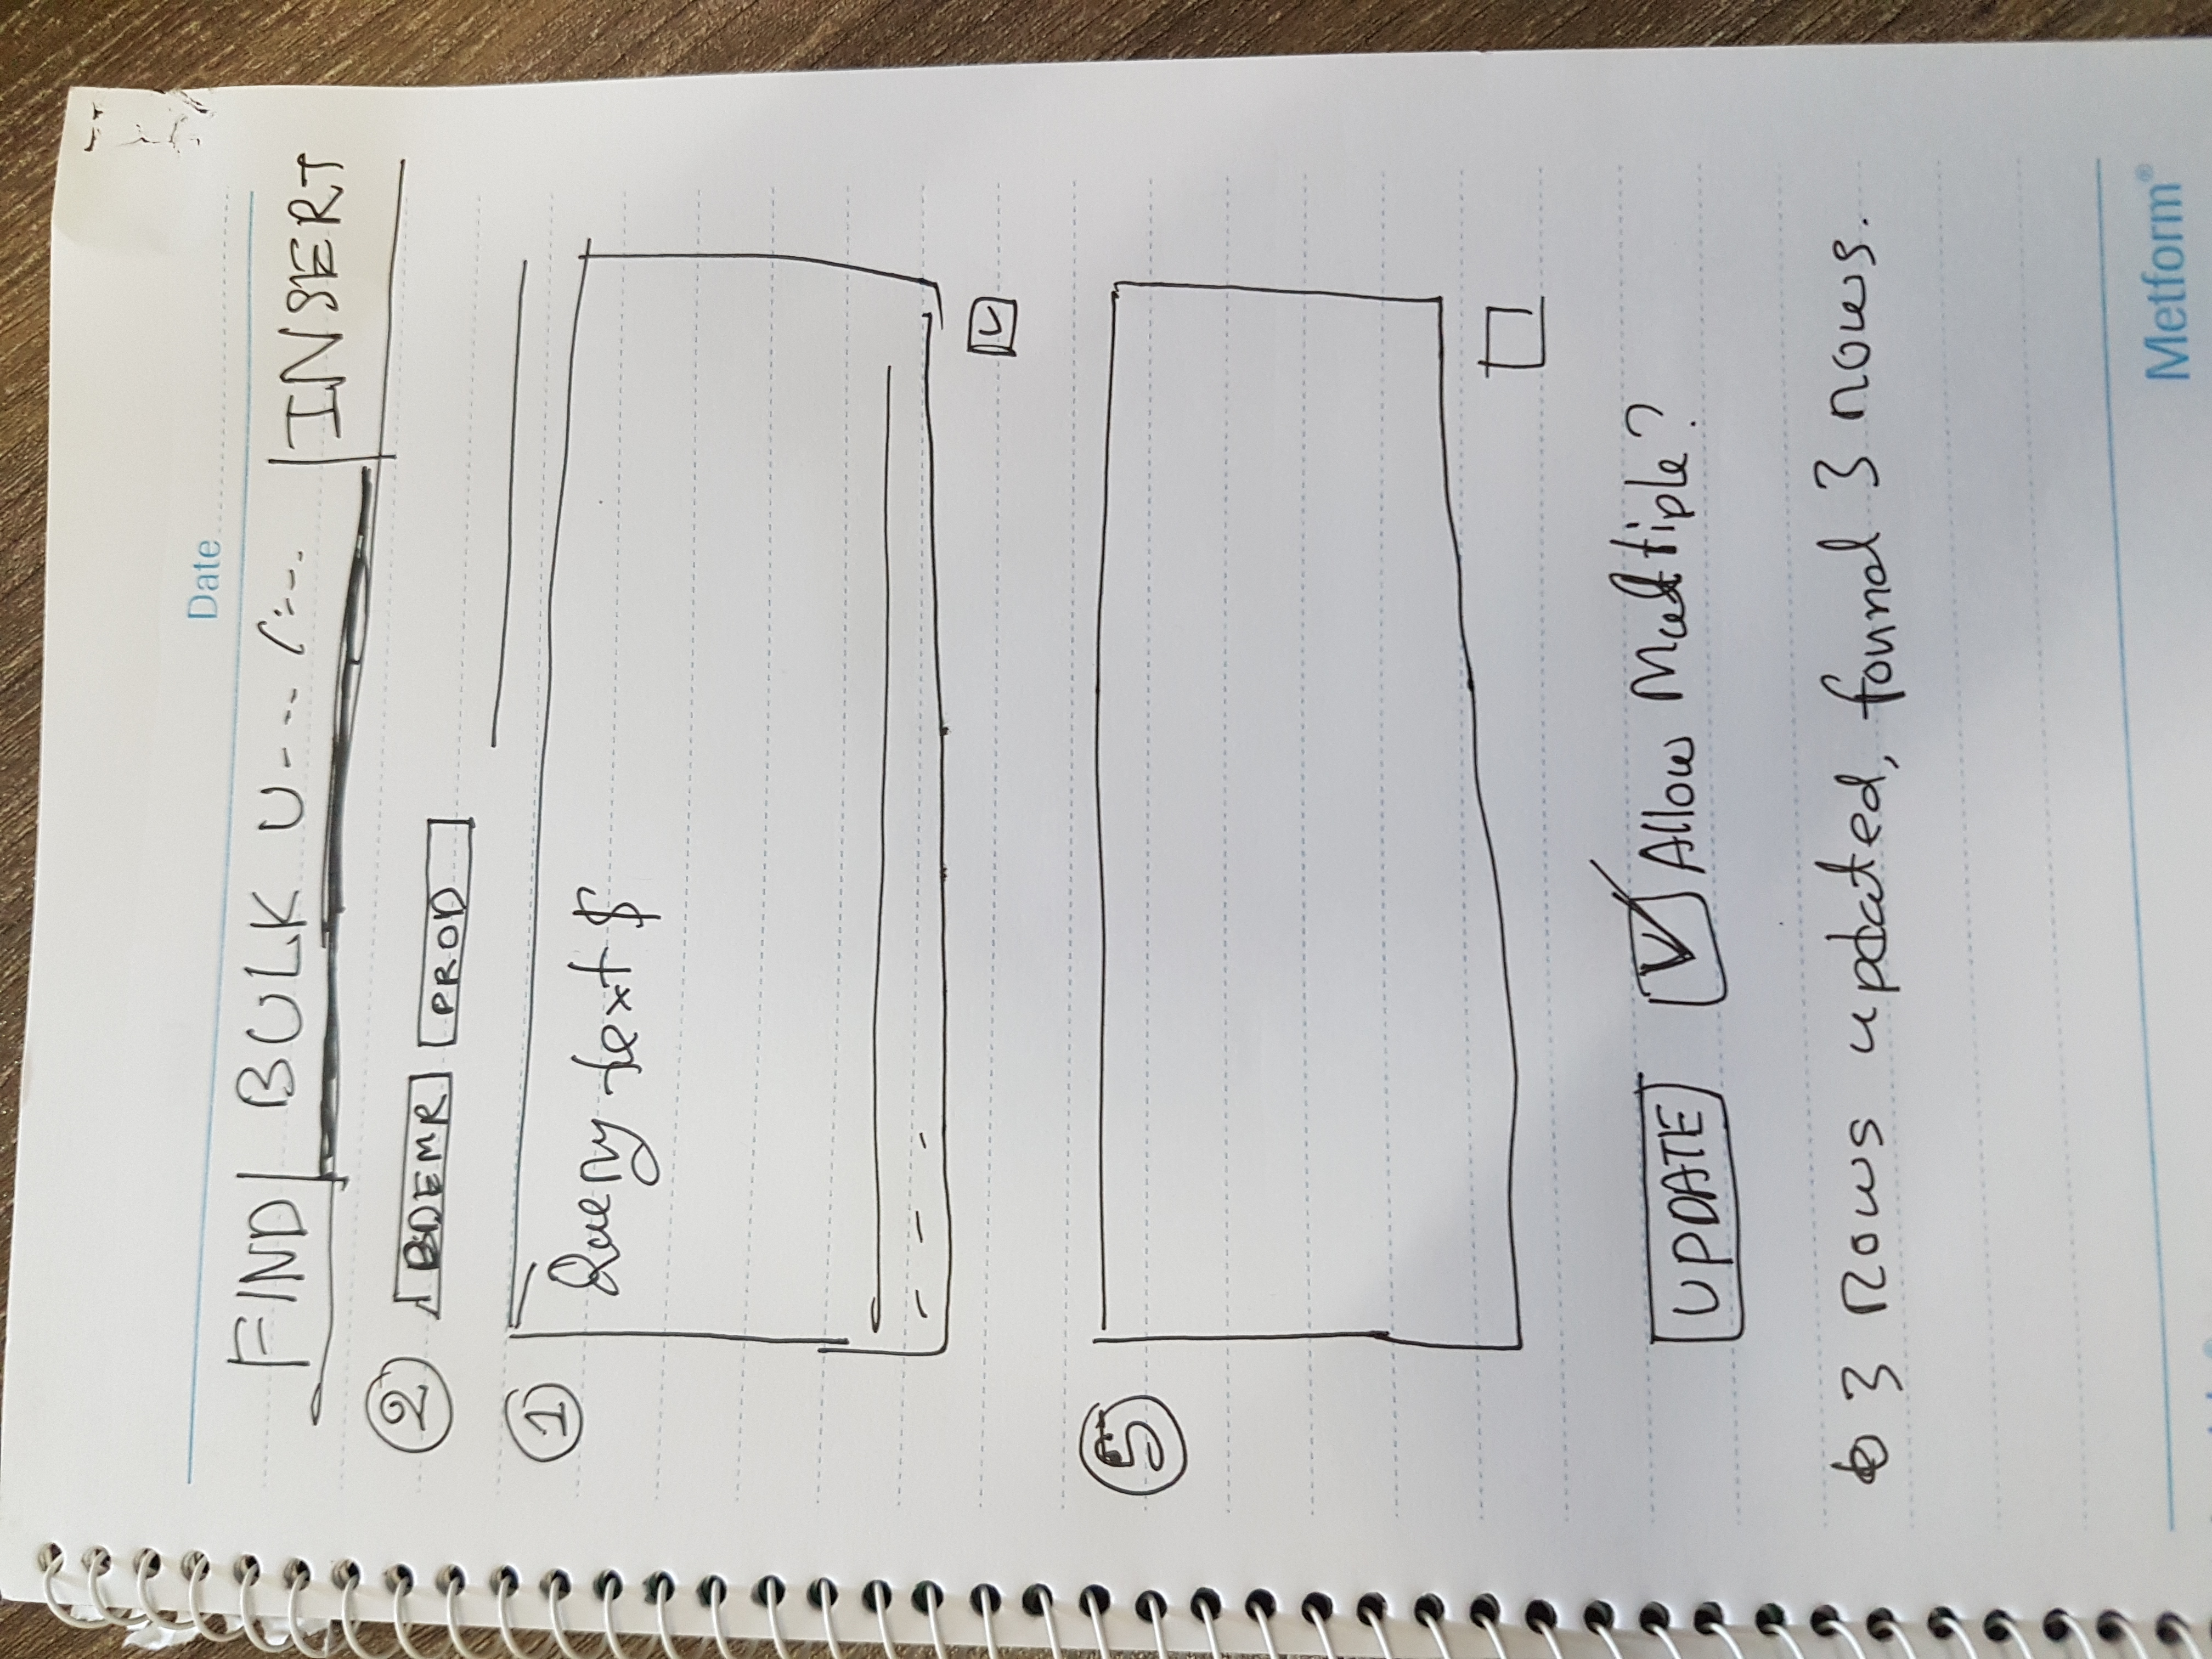 Date
FIND BULK U--- /:--. INSERT
2 BDEMR PROD
1 Query text $
- - -
5
UPDATE Allow Multiple?
3 rows updated, found 3 rows.
Metform®